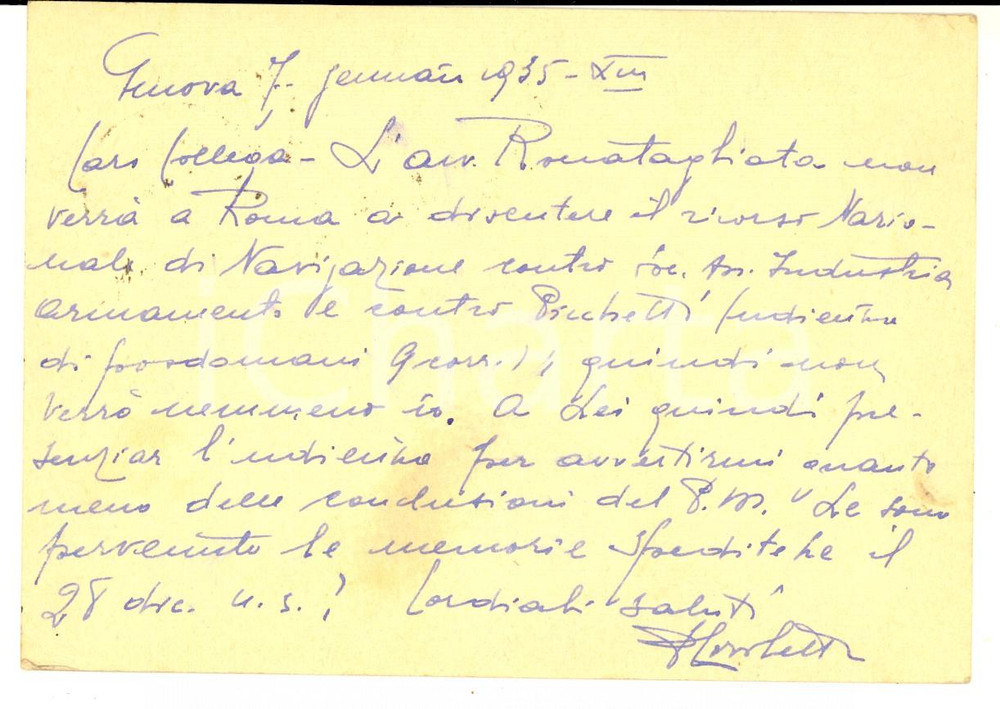 Genova 7. gennaio 1935-XIII
Caro Collega - L'avv. Romatagliata non
verrà a Roma a discutere il ricorso Nazio-
nale di Navigazione contro Soc. An. Industria
Armamento e contro Picchetti (udienza
di posdomani 9 corr.), quindi non
verrò nemmeno io. A Lei quindi pre-
senziar l'udienza per avvertirmi quanto
meno delle conclusioni del P.M. Le sono
pervenute le memorie speditele il
28 dic. u. s.? Cordiali saluti
iCharta